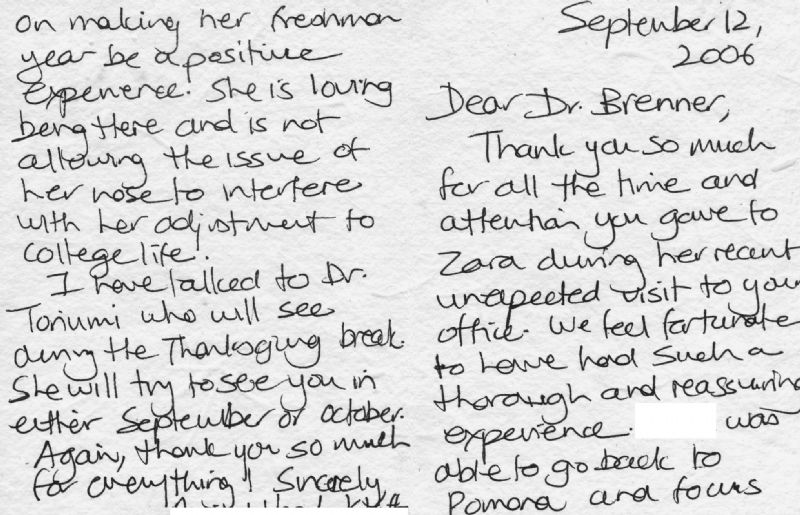 September 12,
2006
Dear Dr. Brenner,
Thank you so much
for all the time and
attention you gave to
Zara during her recent
unexpected visit to your
office. We feel fortunate
to have had such a
thorough and reassuring
experience. was
able to go back to
Pomona and focus
on making her freshman
year be a positive
experience. She is loving
being there and is not
allowing the issue of
her nose to interfere
with her adjustment to
college life.
I have talked to Dr.
Toriumi who will see
during the Thanksgiving break.
She will try to see you in
either September or October.
Again, thank you so much
for everything! Sincerely